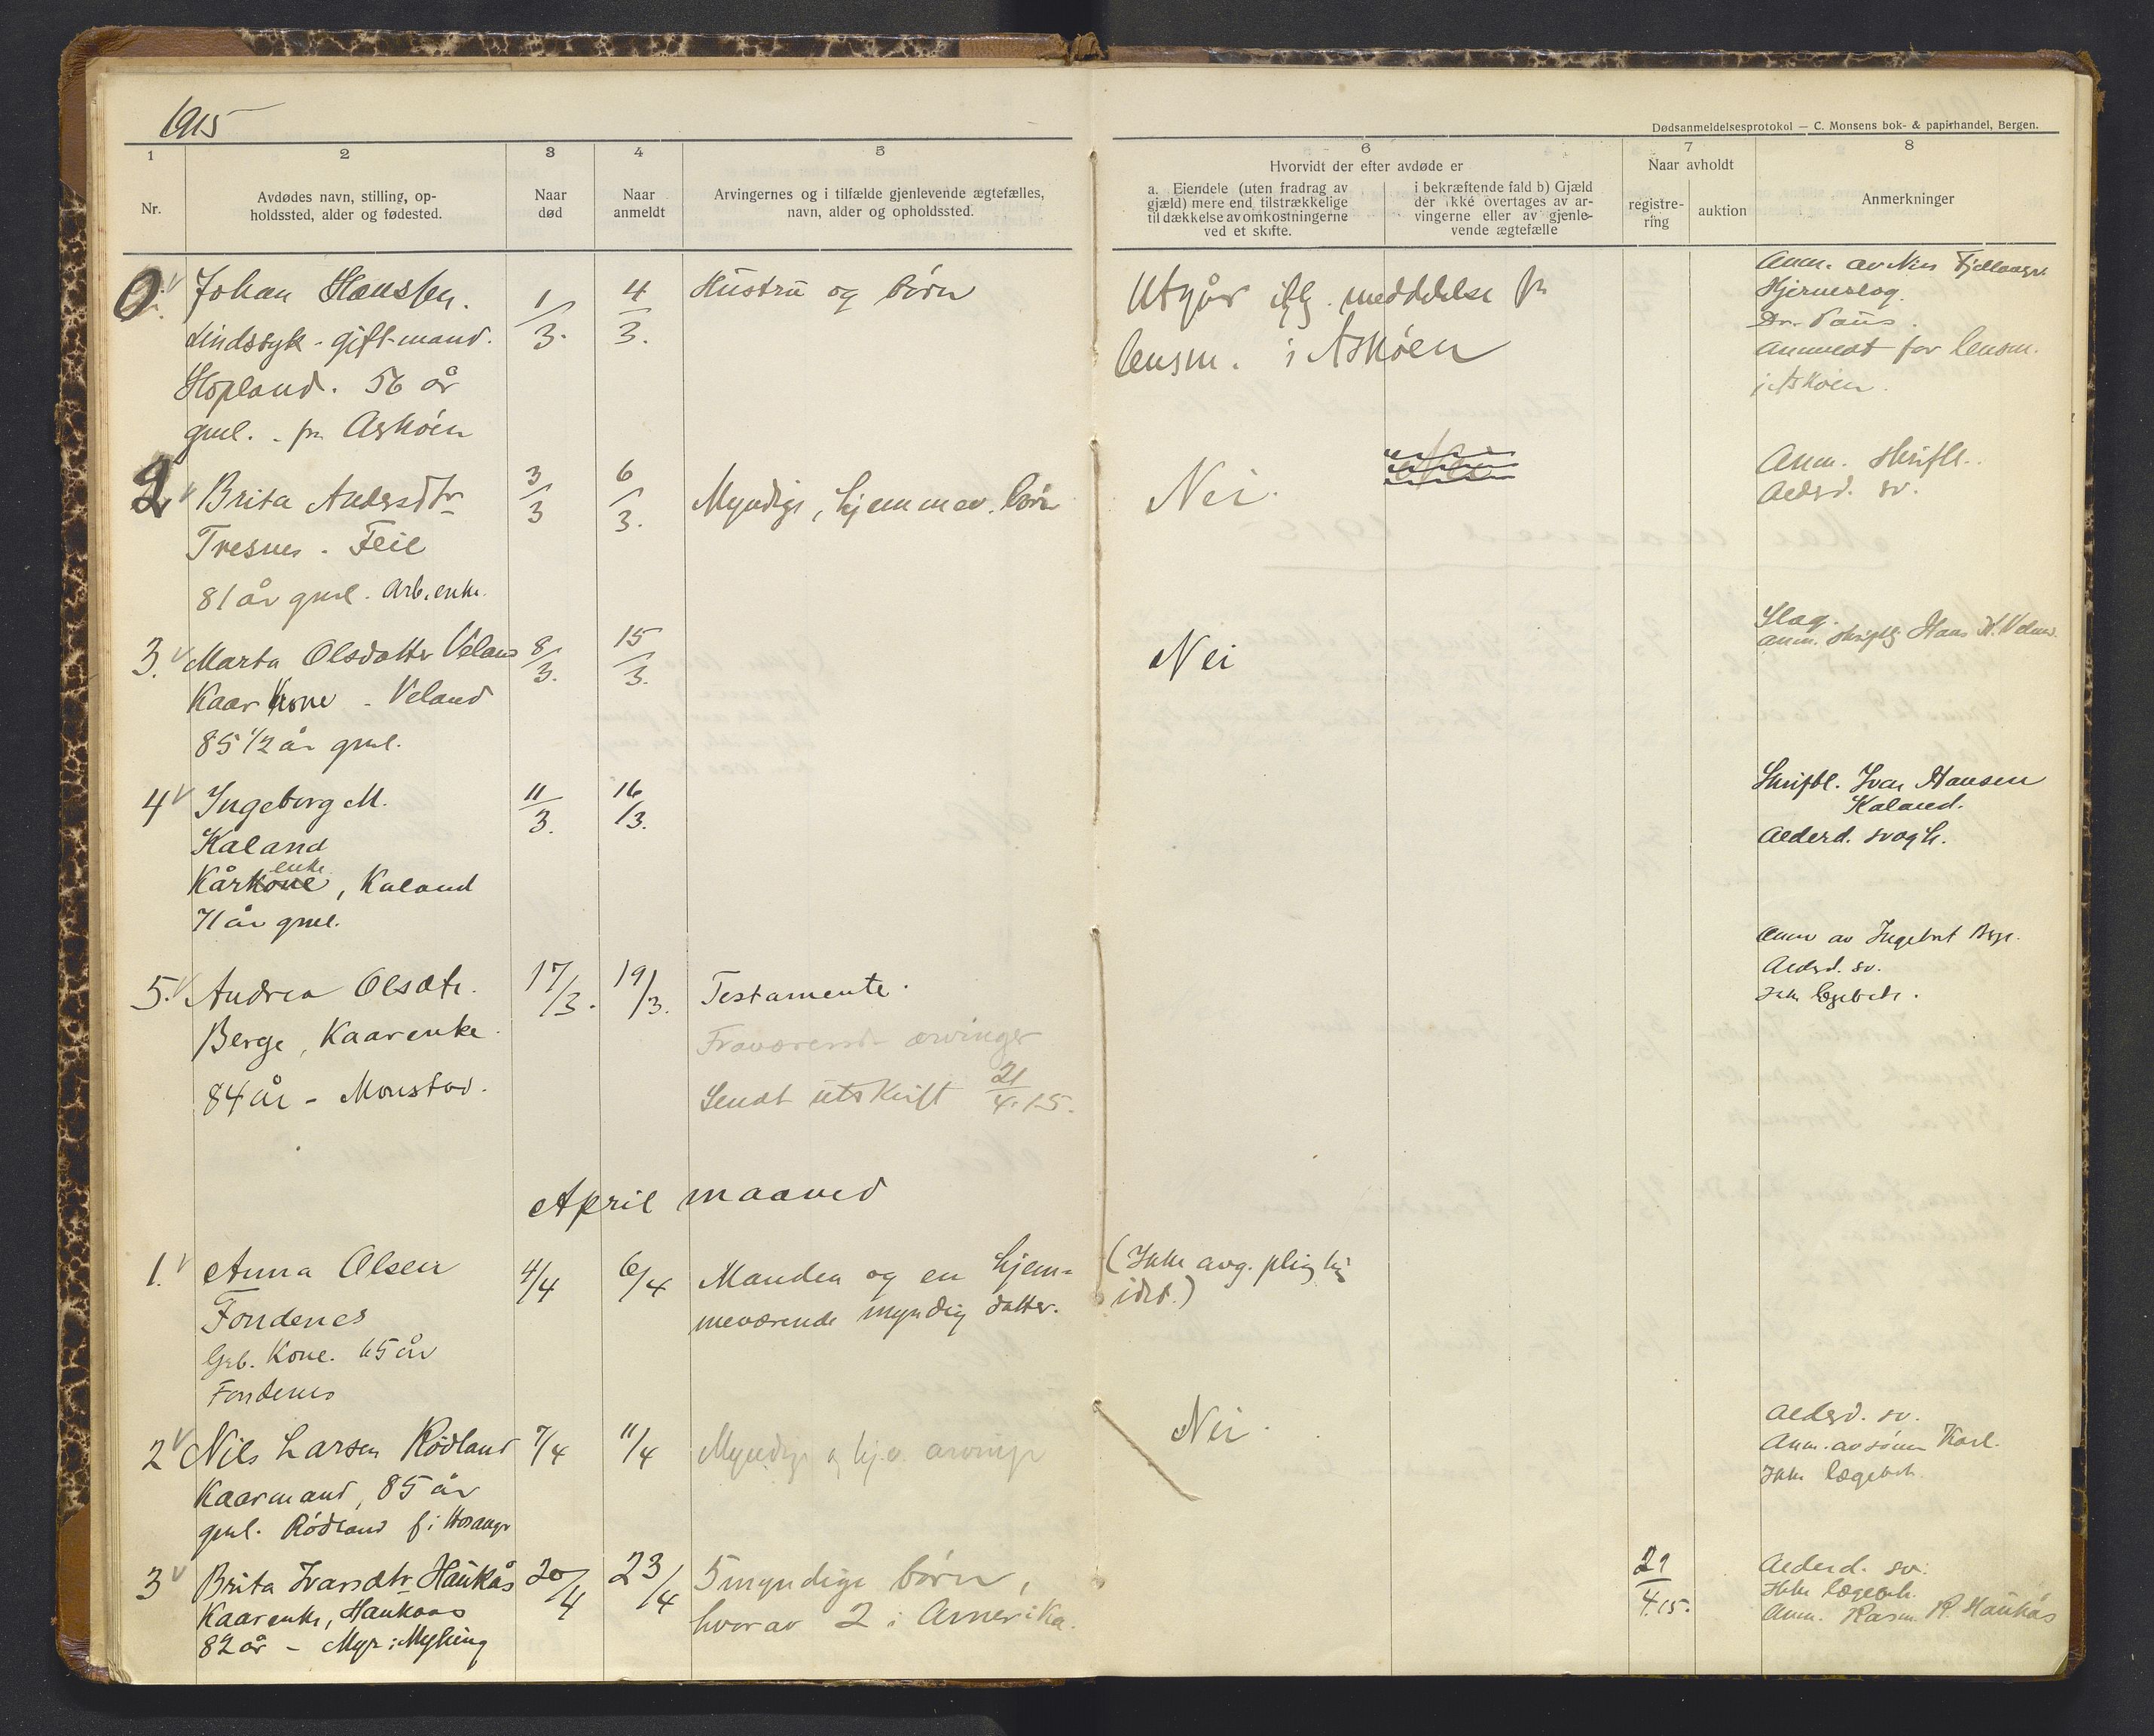 1915
Dødsanmeldelsesprotokol — C. Monsens bok- & papirhandel, Bergen.
1 2 3 4 5 6 7 8
Nr.
Avdødes navn, stilling, op-
holdssted, alder og fødested.
Naar
død
Naar
anmeldt
Arvingernes og i tilfælde gjenlevende ægtefælles,
navn, alder og opholdssted.
Hvorvidt der efter avdøde er
a. Eiendele (uten fradrag av
gjæld) mere end tilstrækkelige
til dækkelse av omkostningerne
ved et skifte.
i bekræftende fald b) Gjæld
der ikke overtages av ar-
vingerne eller av gjenle-
vende ægtefælle
Naar avholdt
registre-
ring
auktion
Anmerkninger
Johan Hanssen.
sindssyk - gift mand.
Hopland. 56 år
gml. - fr. Askøen
1/3.
4/3.
Hustru og børn
Utgår iflg. meddelelse fr
lensm. i Askøen
Anm. av Nils
Hjernesag.
anmeldt for lensm.
i Askøen.
2 Brita Andersdtr
Tresnes - Feie
81 år gml. Arb. enke.
3/3
6/3.
Myndige, hjemmev. børn
Nei.
Anm. skriftl.
Aldersd. sv.
3. Marta Olsdatter Veland
Kaarkone - Veland
85 1/2 år gml.
8/3.
15/3.
Nei
Slag.
anm. skriftlg Hans
4 Ingeborg M.
Kaland
enke
Kårkone, Kaland
71 år gml.
11/3.
16/3.
Skriftl. Ivar Hansen
Kaland.
Alderd. svagh.
5. Andrea Olsdtr.
Berge, Kaarenke.
84 år - Monstad.
17/3.
19/3.
Testamente.
Fraværende arvinger
Sendt utskrift 21/4.15.
Anm av Ingebrt Berge.
Aldersd. sv.
Ikke lægebeh.
April maaned
1. Anna Olsen
Fondenes
Grb. Kone. 65 år
Fondenes
4/4
6/4
Manden og en hjem-
meværende myndig datter.
(Ikke avg. pligtig
idet.)
2 Nils Larsen Rödland
Kaarmand, 85 år
gml. Rödland f. i Hosanger
7/4
11/4
Myndige og hj.v. arvinger
Nei.
Aldersd. sv.
Anm. av sønen Karl.
Ikke lægebeh.
3 Brita Ivarsdtr Haukås
Kaarenke, Haukaas
82 år - Myr i Myking
20/4
23/4
5 myndige børn,
hvorav 2 i Amerika.
29/4.15.
Alderd. sv.
Ikke lægebeh.
Anm. Rasm. R. Haukås